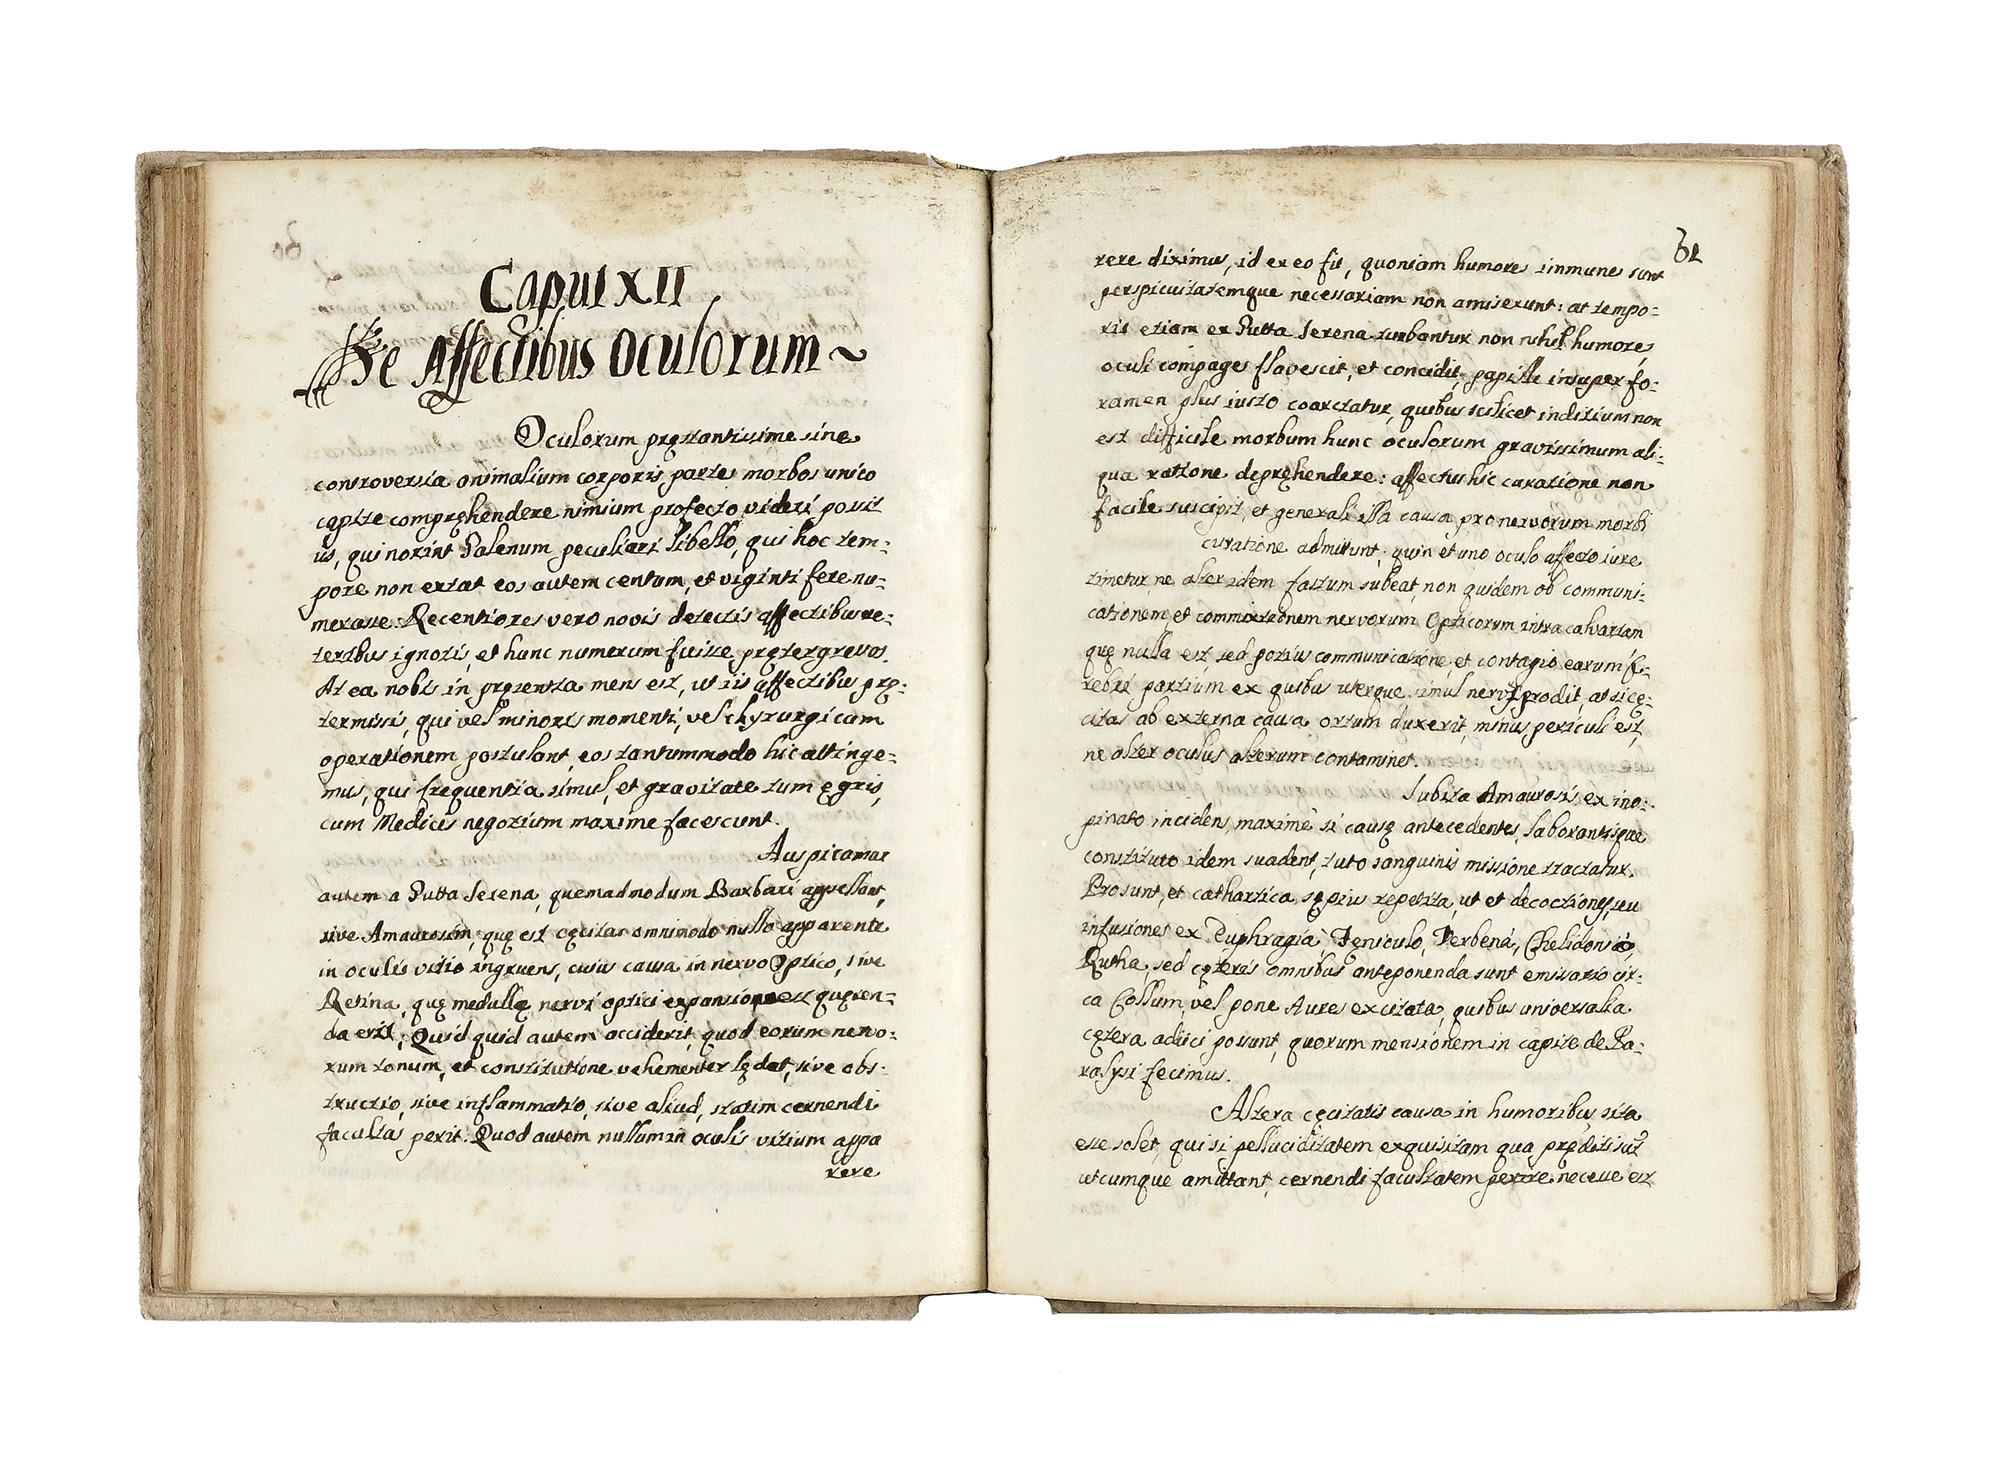 Caput XII
De Affectibus Oculorum ~
Oculorum pręstantissime sine
controversia animalium corporis partes morbos unico
capite compręhendere nimium profecto videri possit
iis, qui norint Galenum peculiari libello, qui hoc tem-
pore non extat eos autem centum, et viginti fere nu-
merasse. Recentiores vero novis detectis affectibus ve-
teribus ignotis, et hunc numerum fuisse pretergressos.
At ea nobis in pręsentia mens est, ut iis affectibus prę-
termissis, qui vel minoris momenti, vel chyrurgicam
operationem postulant, eos tantummodo hic attinge-
mus, qui frequentia simul, et gravitate tum ęgris,
cum Medicis negotium maxime facescunt.
Auspicamur
autem a Gutta Serena, quemadmodum Barbari appellant,
sive Amaurosim, quę est cęcitas omnimodo nullo apparente
in oculis vitio ingruens, cuius causa in nervo Optico, sive
Retina, quę medullę nervi optici expansio est quęren-
da erit; Quid quid autem acciderit, quod eorum nervo-
rum tonum, et constitutione vehementer lędat, sive obs-
tructio, sive inflammatio, sive aliud, statim cernendi
facultas perit: Quod autem nullum in oculis vitium appa
rere
61
rere diximus, id ex eo fit, quoniam humores immunes sunt
perspicuitatemque necessariam non amiserunt: at tempo-
ris etiam ex Gutta Serena turbantur non nihil humores,
oculi compages flavescit, et concidit, papille insuper fo-
ramen plus iusto coarctatur, quibus scilicet inditium non
est difficile morbum hunc oculorum gravissimum ali-
qua ratione deprehendere: affectus hic curatione non
facile suscipit, et generali illa causa pro nervorum morbi
curatione admittunt; quin et uno oculo affecto iure
timetur, ne alter idem fatum subeat, non quidem ob communi-
cationem, et commixtionem nervorum Opticorum intra calvariam
quę nulla est, sed potius communicatione, et contagio earum ce-
rebri partium ex quibus uterque simul nervus prodit, at si cę-
citas ab externa causa ortum duxerit, minus periculi est,
ne alter oculus alterum contaminet.
Subita Amaurosis ex ino-
pinato incidens, maximè si causę antecedentes, laborantisque
constituto idem suadent, tuto sanguinis missione tractatur.
Prosunt, et cathartica sępius repetita, ut et decoctiones, seu
infusiones ex Euphragia, Feniculo, Verbena, Chelidonia,
Rutha, sed cęteris omnibus anteponenda sunt emissario cir-
ca Collum, vel pone Aures excitata, quibus universalia
cętera adiici possunt, quorum mensionem in capite de Pa-
ralysi fecimus.
Altera cęcitatis causa in humoribus sita
esse solet, qui si pelluciditatem exquisitam qua pręditi sut
utcumque amittant, cernendi facultatem perire necesse est